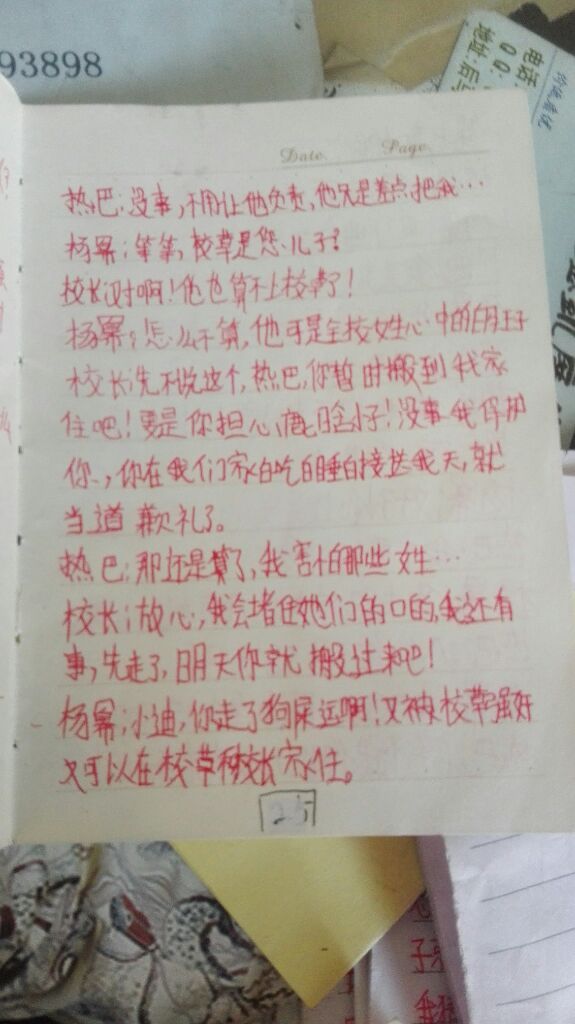 93898
电话
QQ:
地址:后
Date Page
热巴:没事,不用让他负责,他只是差点把我…
杨幂:等等,校草是您儿子?
校长:对啊!他也算不上校草了!
杨幂:怎么不算,他可是全校女生心中的白马王子
校长:先不说这个,热巴,你暂时搬到我家
住吧!要是你担心鹿晗小子!没事我保护
你,你在我们家白吃白睡白接送我天,就
当道歉礼了。
热巴:那还是算了,我害怕那些女生…
校长:放心,我会堵住她们的口的,我还有
事,先走了,明天你就搬过来吧!
杨幂:小迪,你走了狗屎运啊!又被校草强奸
又可以在校草和校长家住。
25